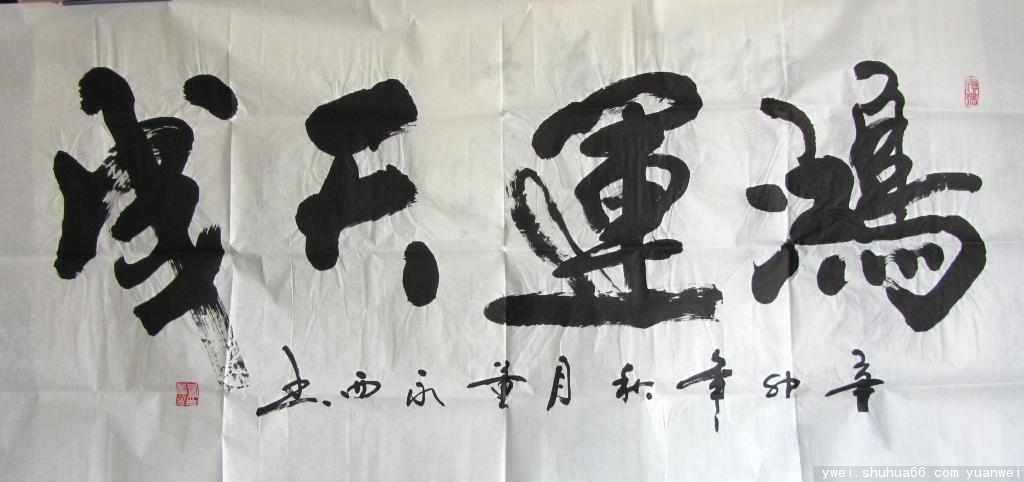 鴻運天成
辛卯年秋月董永西书
ywei.shuhua66.com yuanwei